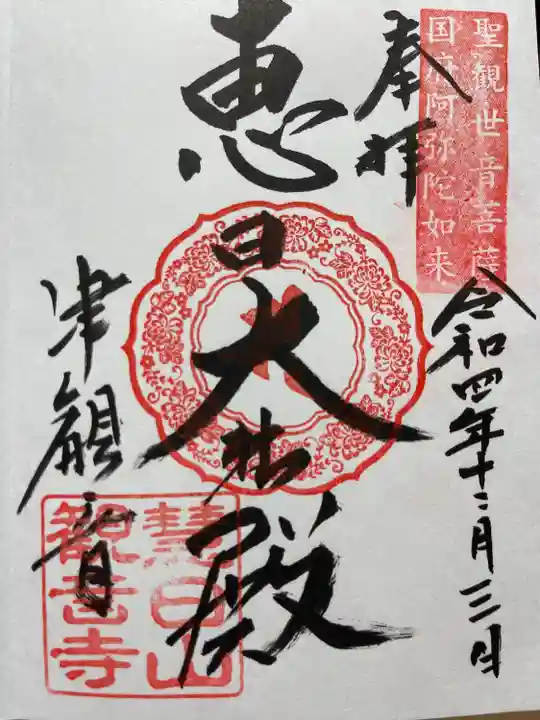 聖観世音菩薩
国府阿弥陀如来
令和四年十二月三日
奉拝
恵日大悲殿
津観音
慧日山
観音寺